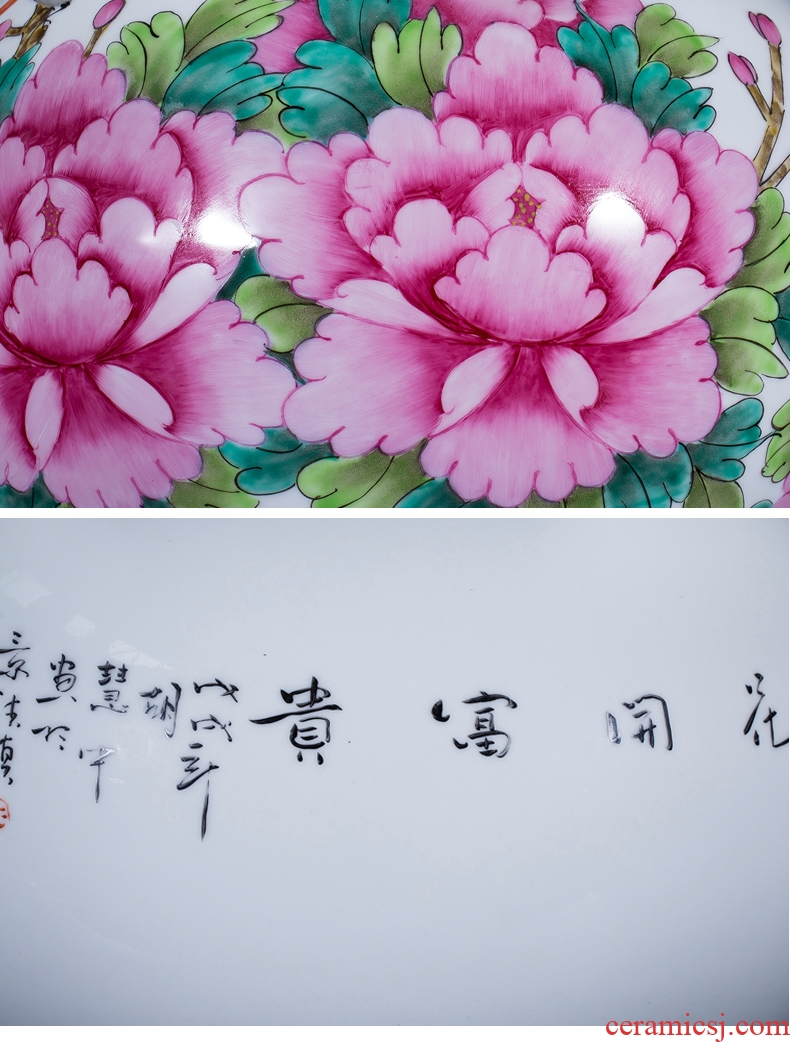 花開富貴
戊戌年
胡
慧中
畫於
景德鎮
ceramicsj.com